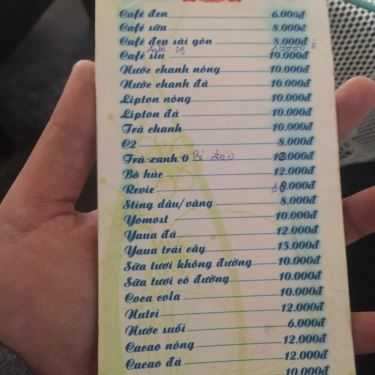 Café đen 6.000đ
Café sữa 8.000đ
Café đen sài gòn 8.000đ
Café 10.000đ
Nước chanh nóng 10.000đ
Nước chanh đá 10.000đ
Lipton nóng 10.000đ
Lipton đá 10.000đ
Trà chanh 10.000đ
C2 8.000đ
Trà xanh 0
Bò húc 12.000đ
Revie
Sting dâu/vàng 8.000đ
Yomost 10.000đ
Yaua đá 12.000đ
Yaua trái cây 15.000đ
Sữa tươi không đường 10.000đ
Sữa tươi có đường 10.000đ
Coca cola 10.000đ
Nutri 12.000đ
Nước suối 6.000đ
Cacao nóng 12.000đ
Cacao đá 12.000đ
10.000đ